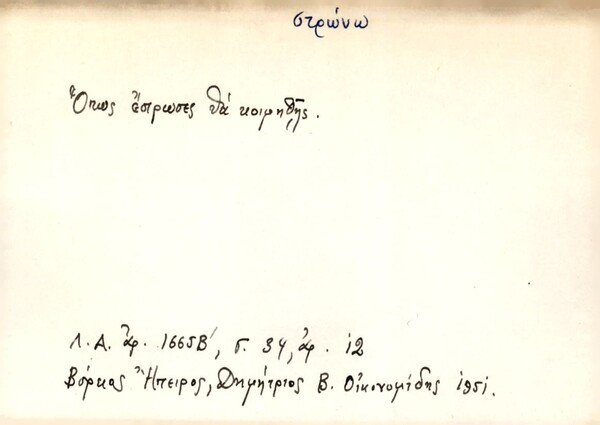 στρώνω
Ὅπως ἔστρωσες θά κοιμηθῇς.
Λ.Α. ἀρ. 1665Β', σ. 34, ἀρ. 12
Βόρκας Ἤπειρος, Δημήτριος Β. Οἰκονομίδης 1951.